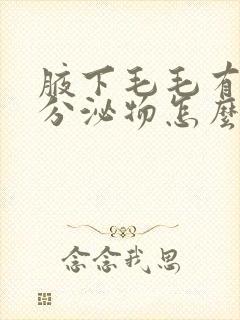 腋下毛毛有
分泌物怎麼
念念我思